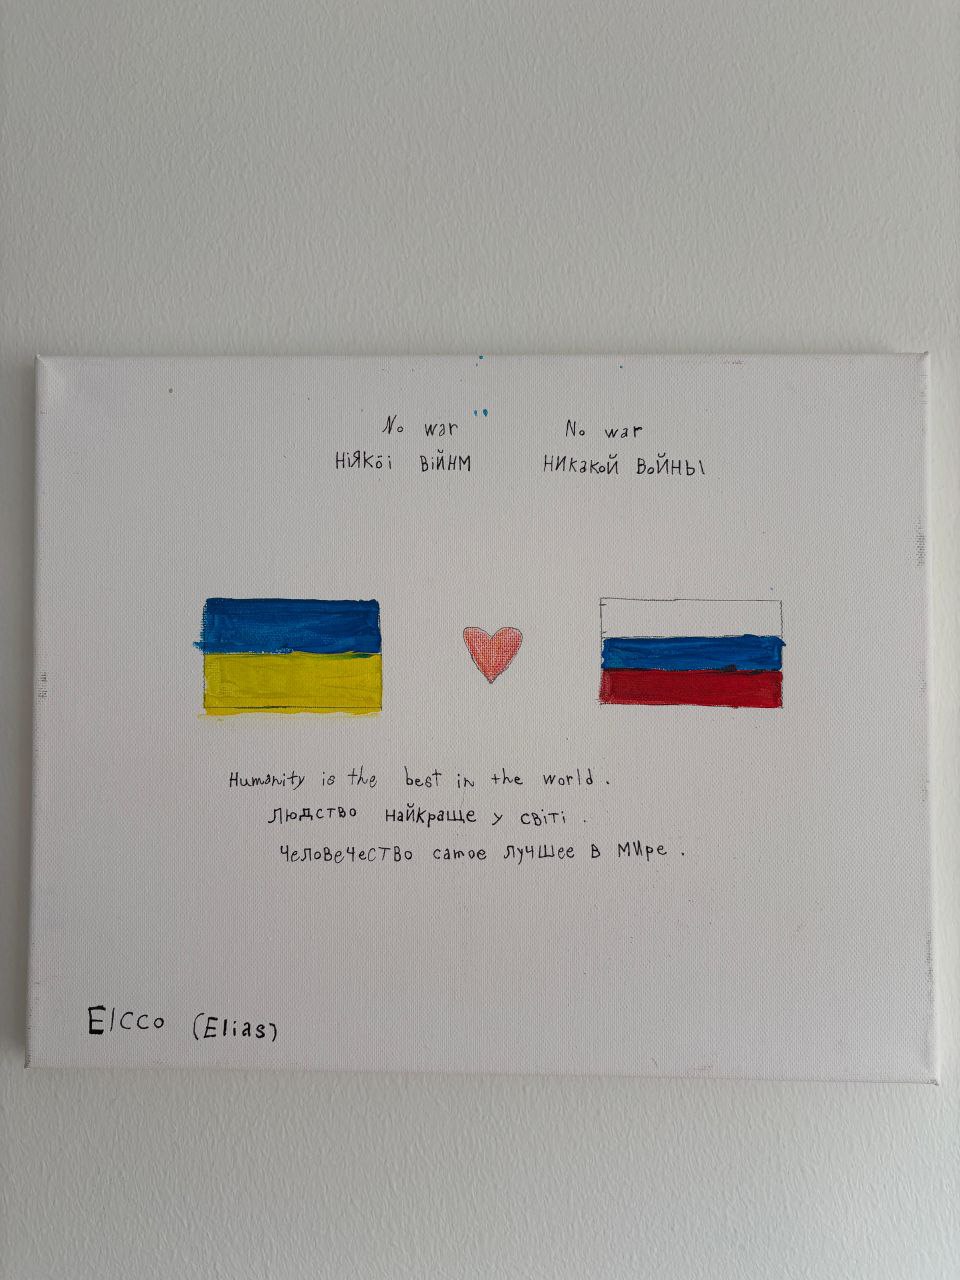 No war No war
НіЯКоїі ВіЙНМ НИКаКоЙ ВоЙНЫ
Humanity is the best in the world .
Людство найкраще у світі .
Человечество самое лучшее в мире .
Elcco (Elias)